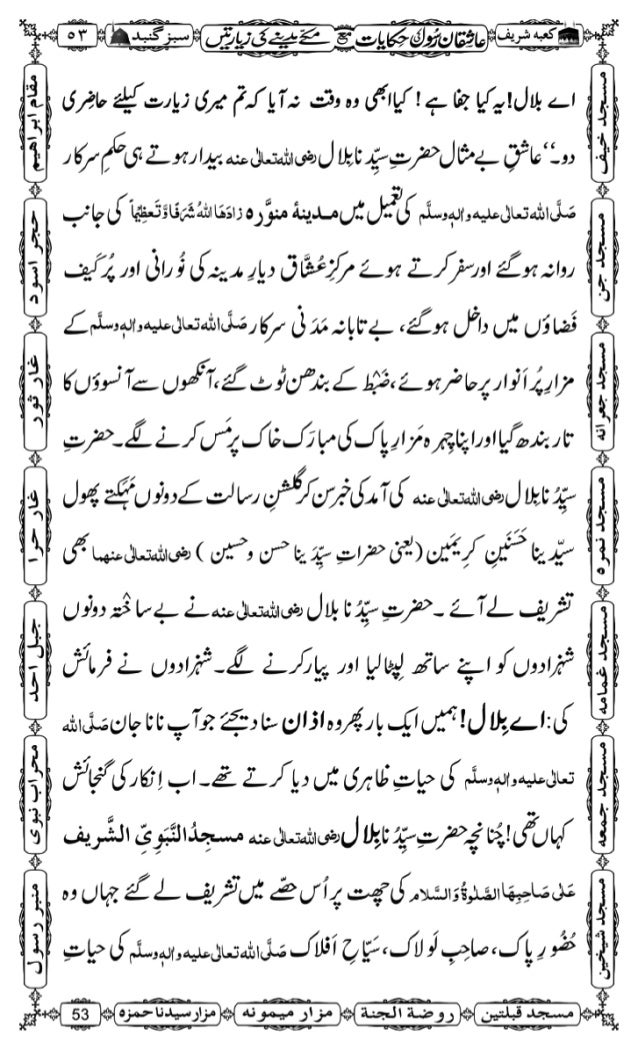 کعبہ شریف
عاشقان رسول کی حکایات مع مکے مدینے کی زیارتیں
سبز گنبد
۵۳
اے بلال! یہ کیا جفا ہے! کیا ابھی وہ وقت نہ آیا کہ تم میری زیارت کیلئے حاضری
دو۔‘‘ عاشقِ بے مثال حضرتِ سیِّدنا بِلال رضی اللہ تعالٰی عنہ بیدار ہوتے ہی حکمِ سرکار
صَلَّی اللہ تعالٰی علیہ واٰلہٖ وسلَّم کی تعمیل میں مدینۂ منوَّرہ زادَھَا اللہُ شَرَفًا وَّتَعظِیْمًا کی جانب
روانہ ہوگئے اور سفر کرتے ہوئے مرکزِ عُشَّاق دیارِ مدینہ کی نُورانی اور پُر کَیف
فَضاؤں میں داخل ہوگئے، بے تابانہ مَدَنی سرکار صَلَّی اللہ تعالٰی علیہ واٰلہٖ وسلَّم کے
مزارِ پُر اَنوار پر حاضر ہوئے، ضَبْط کے بندھن ٹوٹ گئے، آنکھوں سے آنسوؤں کا
تار بندھ گیا اور اپنا چہرہ مَزارِ پاک کی مبارَک خاک پر مَس کرنے لگے۔ حضرتِ
سیِّدُنا بِلال رضی اللہ تعالٰی عنہ کی آمد کی خبر سن کر گلشنِ رسالت کے دونوں مَہَکتے پھول
سیِّدینا حَسَنَینِ کَرِیمَین (یعنی حضراتِ سیِّدَینا حسن و حسین) رضی اللہ تعالٰی عنہما بھی
تشریف لے آئے۔ حضرتِ سیِّدُنا بلال رضی اللہ تعالٰی عنہ نے بے ساختہ دونوں
شہزادوں کو اپنے ساتھ لِپٹا لیا اور پیار کرنے لگے۔ شہزادوں نے فرمائش
کی: اے بلال! ہمیں ایک بار پھر وہ اذان سنا دیجئے جو آپ نانا جان صَلَّی اللہ
تعالٰی علیہ واٰلہٖ وسلَّم کی حیاتِ ظاہری میں دیا کرتے تھے۔ اب اِنکار کی گنجائش
کہاں تھی! چُنانچِہ حضرتِ سیِّدُنا بِلال رضی اللہ تعالٰی عنہ مسجدُالنَّبَوِیِّ الشَّریف
عَلٰی صَاحِبِھَا الصَّلٰوۃُ وَالسَّلام کی چھت پر اُس حصّے میں تشریف لے گئے جہاں وہ
حُضُورِ پاک، صاحِبِ لَولاک، سَیّاحِ اَفلاک صَلَّی اللہ تعالٰی علیہ واٰلہٖ وسلَّم کی حیاتِ
مسجد خیف
مسجد جن
مسجد جعرانہ
مسجد نمرہ
مسجد غمامہ
مسجد جمعہ
مسجد شیخین
مقام ابراھیم
حجر اسود
غار ثور
غار حرا
جبل احد
محراب نبوی
منبر رسول
مسجد قبلتین
روضۃ الجنۃ
مزار میمونہ
مزار سیدنا حمزہ
53